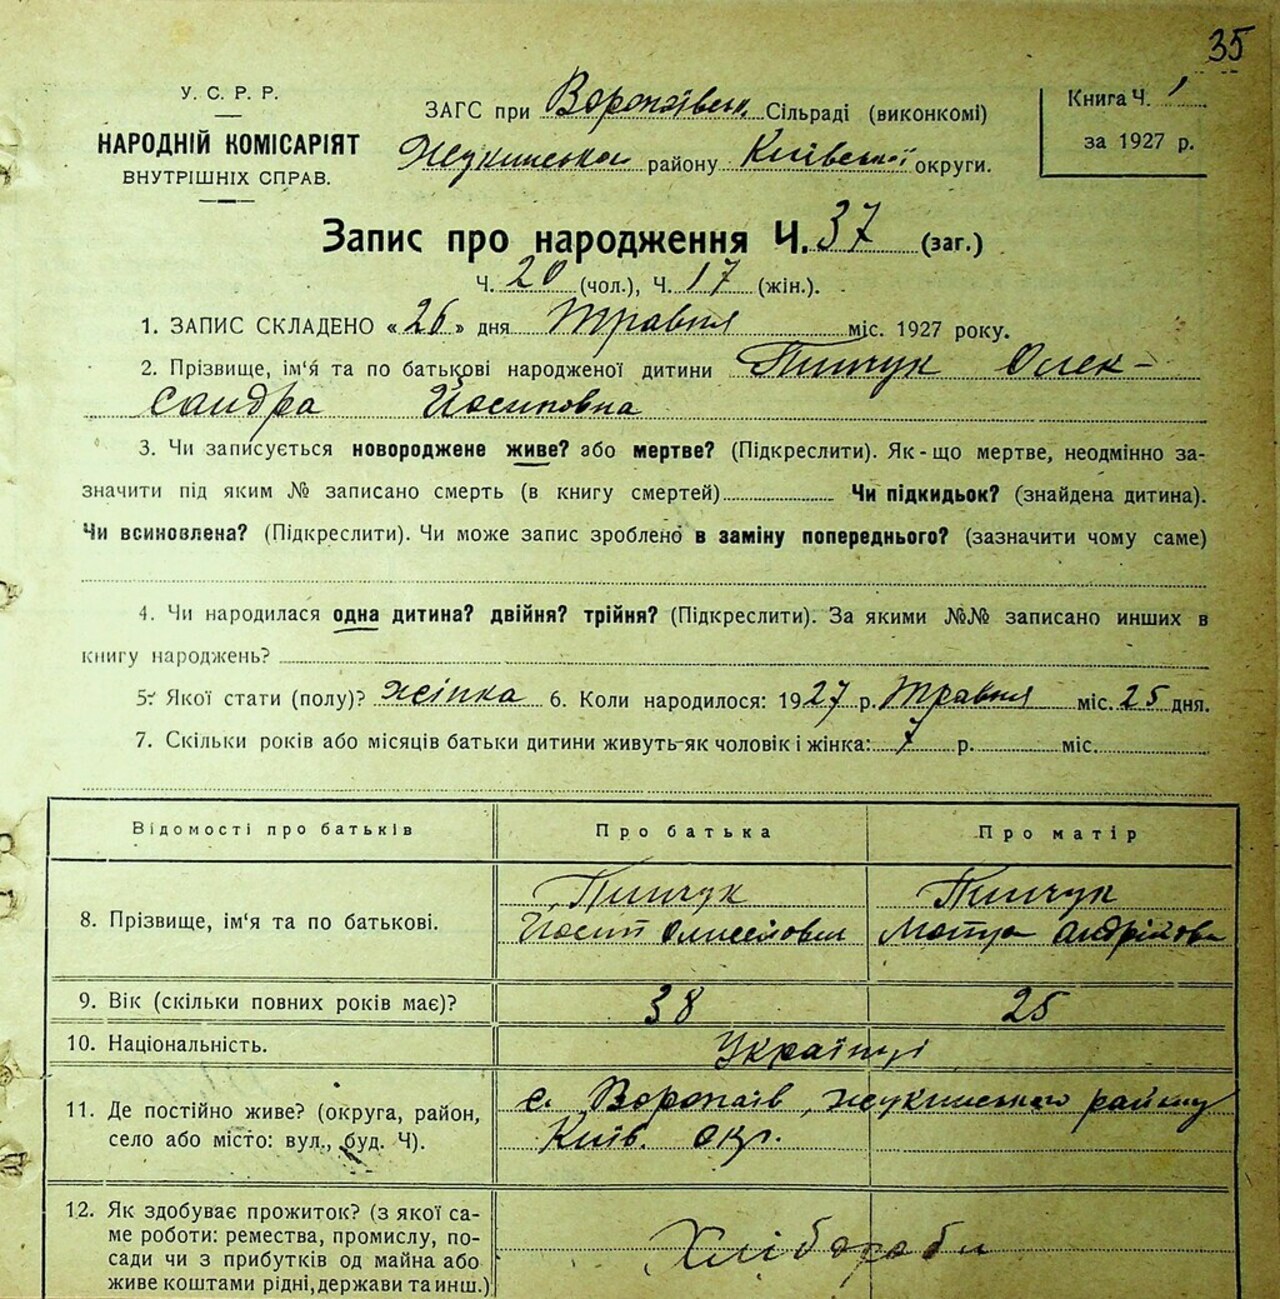 35
У. С. Р. Р.
НАРОДНІЙ КОМІСАРІЯТ
ВНУТРІШНІХ СПРАВ.
ЗАГС при Воропаївськ. Сільраді (виконкомі)
Жукинськом району Київської округи.
Книга Ч. 1
за 1927 р.
Запис про народження Ч. 37 (заг.)
Ч. 20 (чол.), Ч. 17 (жін.).
1. ЗАПИС СКЛАДЕНО «26» дня Травня міс. 1927 року.
2. Прізвище, ім‘я та по батькові народженої дитини Пинчук Олек-
сандра Йосиповна
3. Чи записується новороджене живе? або мертве? (Підкреслити). Як-що мертве, неодмінно за-
значити під яким № записано смерть (в книгу смертей) Чи підкидьок? (знайдена дитина).
Чи всиновлена? (Підкреслити). Чи може запис зроблено в заміну попереднього? (зазначити чому саме)
4. Чи народилася одна дитина? двійня? трійня? (Підкреслити). За якими №№ записано инших в
книгу народжень?
5. Якої стати (полу)? жінка 6. Коли народилося: 1927 р. Травня міс. 25 дня.
7. Скільки років або місяців батьки дитини живуть-як чоловік і жінка: 7 р. міс.
Відомості про батьків Про батька Про матір
8. Прізвище, ім‘я та по батькові. Пинчук Пинчук
Йосип Андрійовн
9. Вік (скільки повних років має)? 38 25
10. Національність. Українці
11. Де постійно живе? (округа, район, с. Воропаїв, Жукинського району
село або місто: вул., буд. Ч). Київ. окр.
12. Як здобуває прожиток? (з якої са-
ме роботи: ремества, промислу, по-
сади чи з прибутків од майна або
живе коштами рідні, держави та инш.) Хлібороби